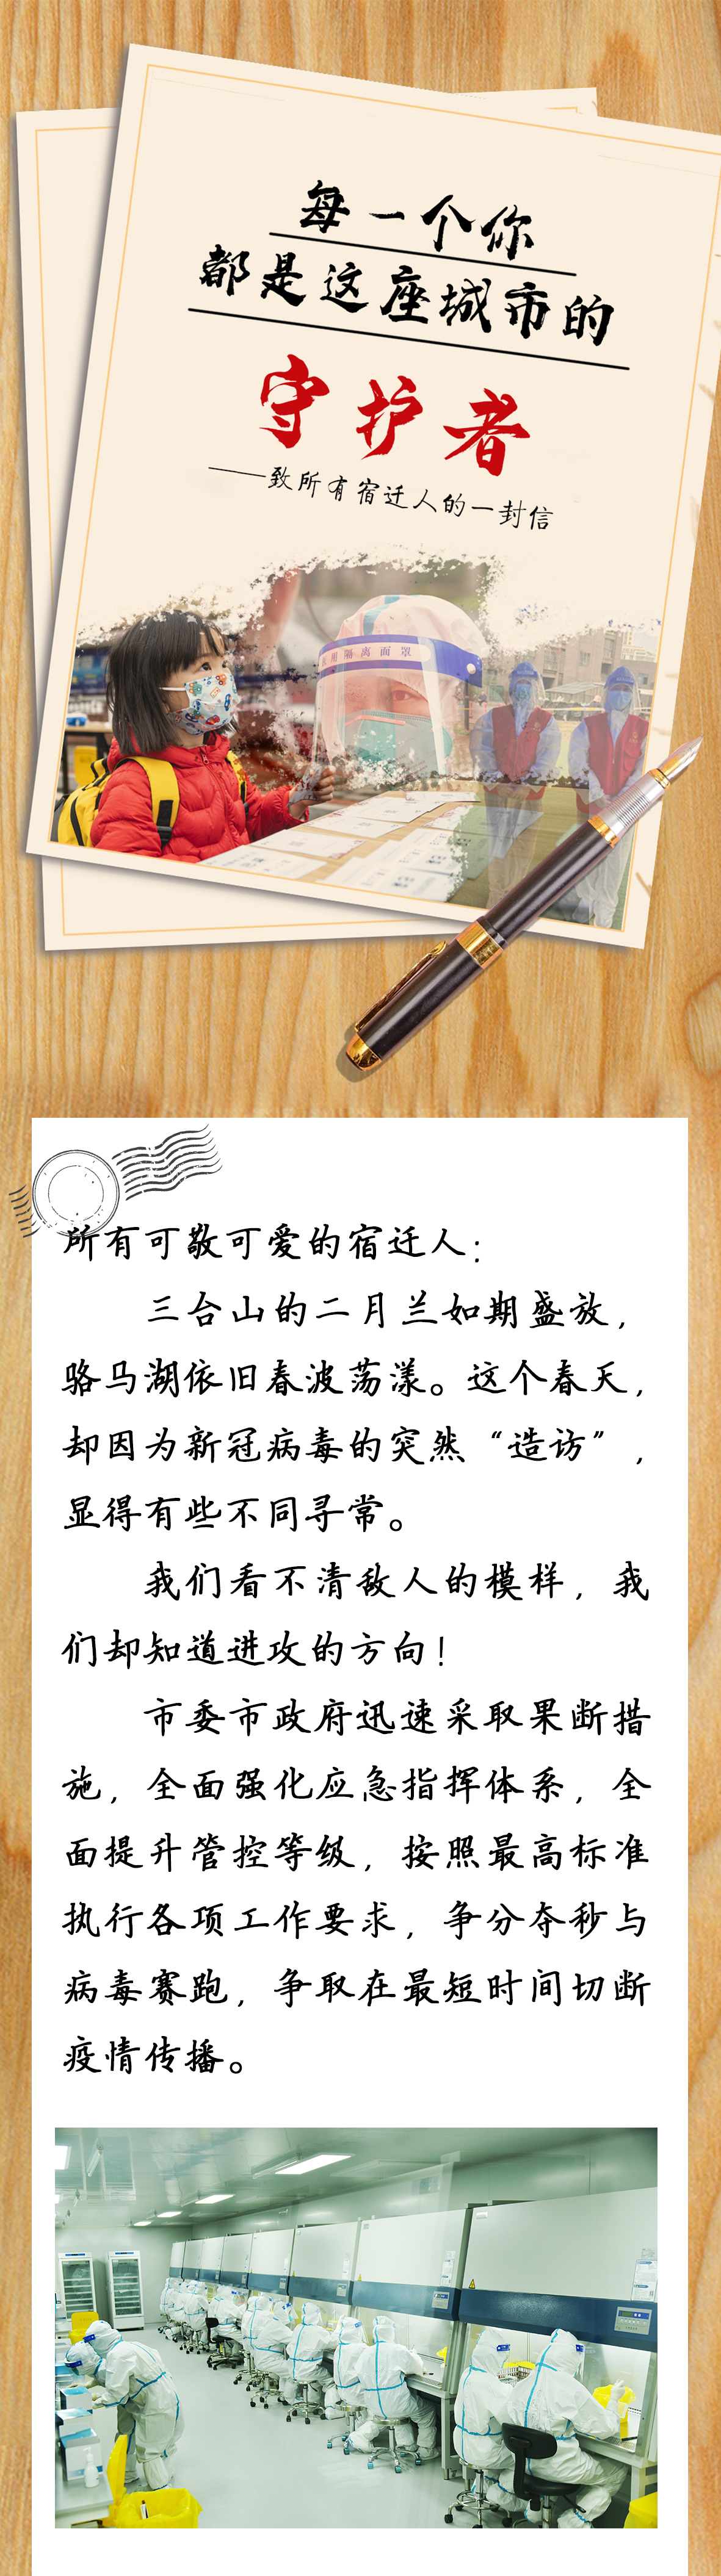 每一个你
都是这座城市的
守护者
——致所有宿迁人的一封信
医用隔离面罩
所有可敬可爱的宿迁人：
三台山的二月兰如期盛放，
骆马湖依旧春波荡漾。这个春天，
却因为新冠病毒的突然“造访”，
显得有些不同寻常。
我们看不清敌人的模样，我
们却知道进攻的方向！
市委市政府迅速采取果断措
施，全面强化应急指挥体系，全
面提升管控等级，按照最高标准
执行各项工作要求，争分夺秒与
病毒赛跑，争取在最短时间切断
疫情传播。